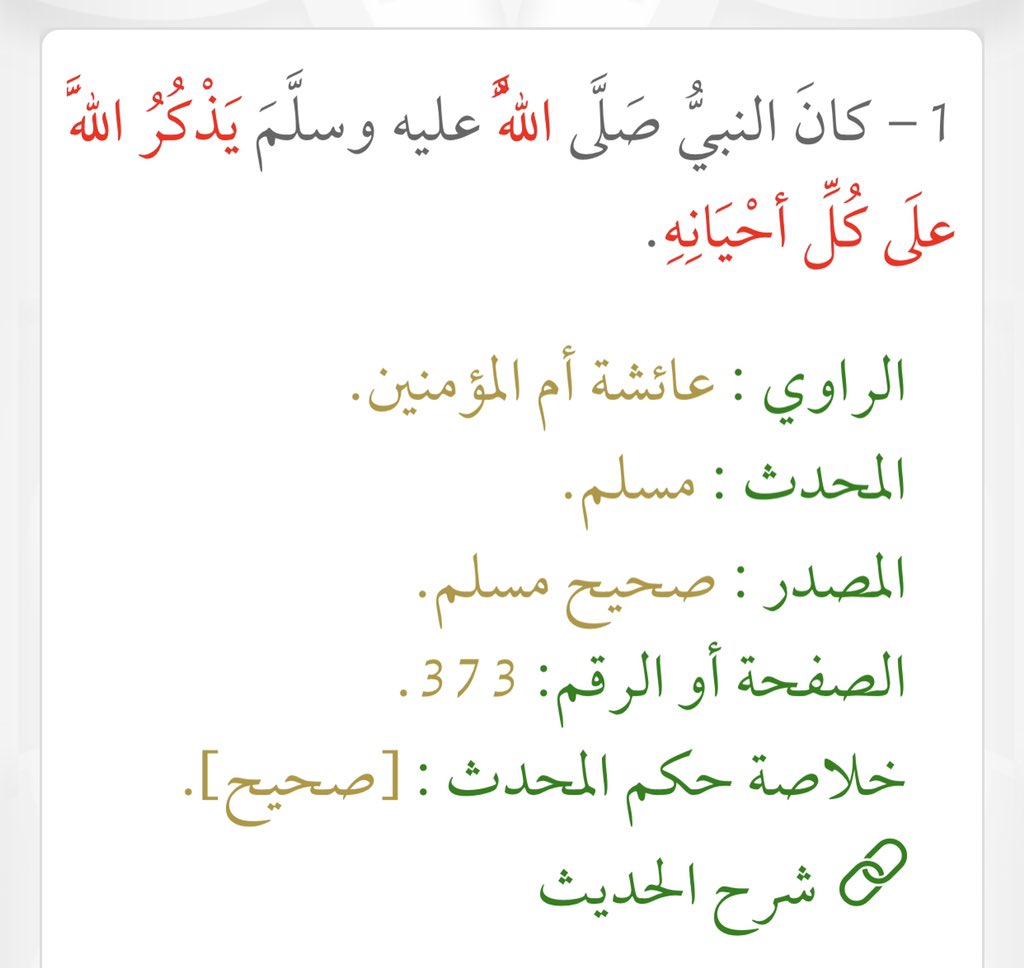 1 – كانَ النبيُّ صَلَّى اللهُ عليه وسلَّمَ يَذْكُرُ اللهَ
علَى كُلِّ أحْيَانِهِ.
الراوي : عائشة أم المؤمنين.
المحدث : مسلم.
المصدر : صحيح مسلم.
الصفحة أو الرقم: 373.
خلاصة حكم المحدث : [صحيح].
شرح الحديث